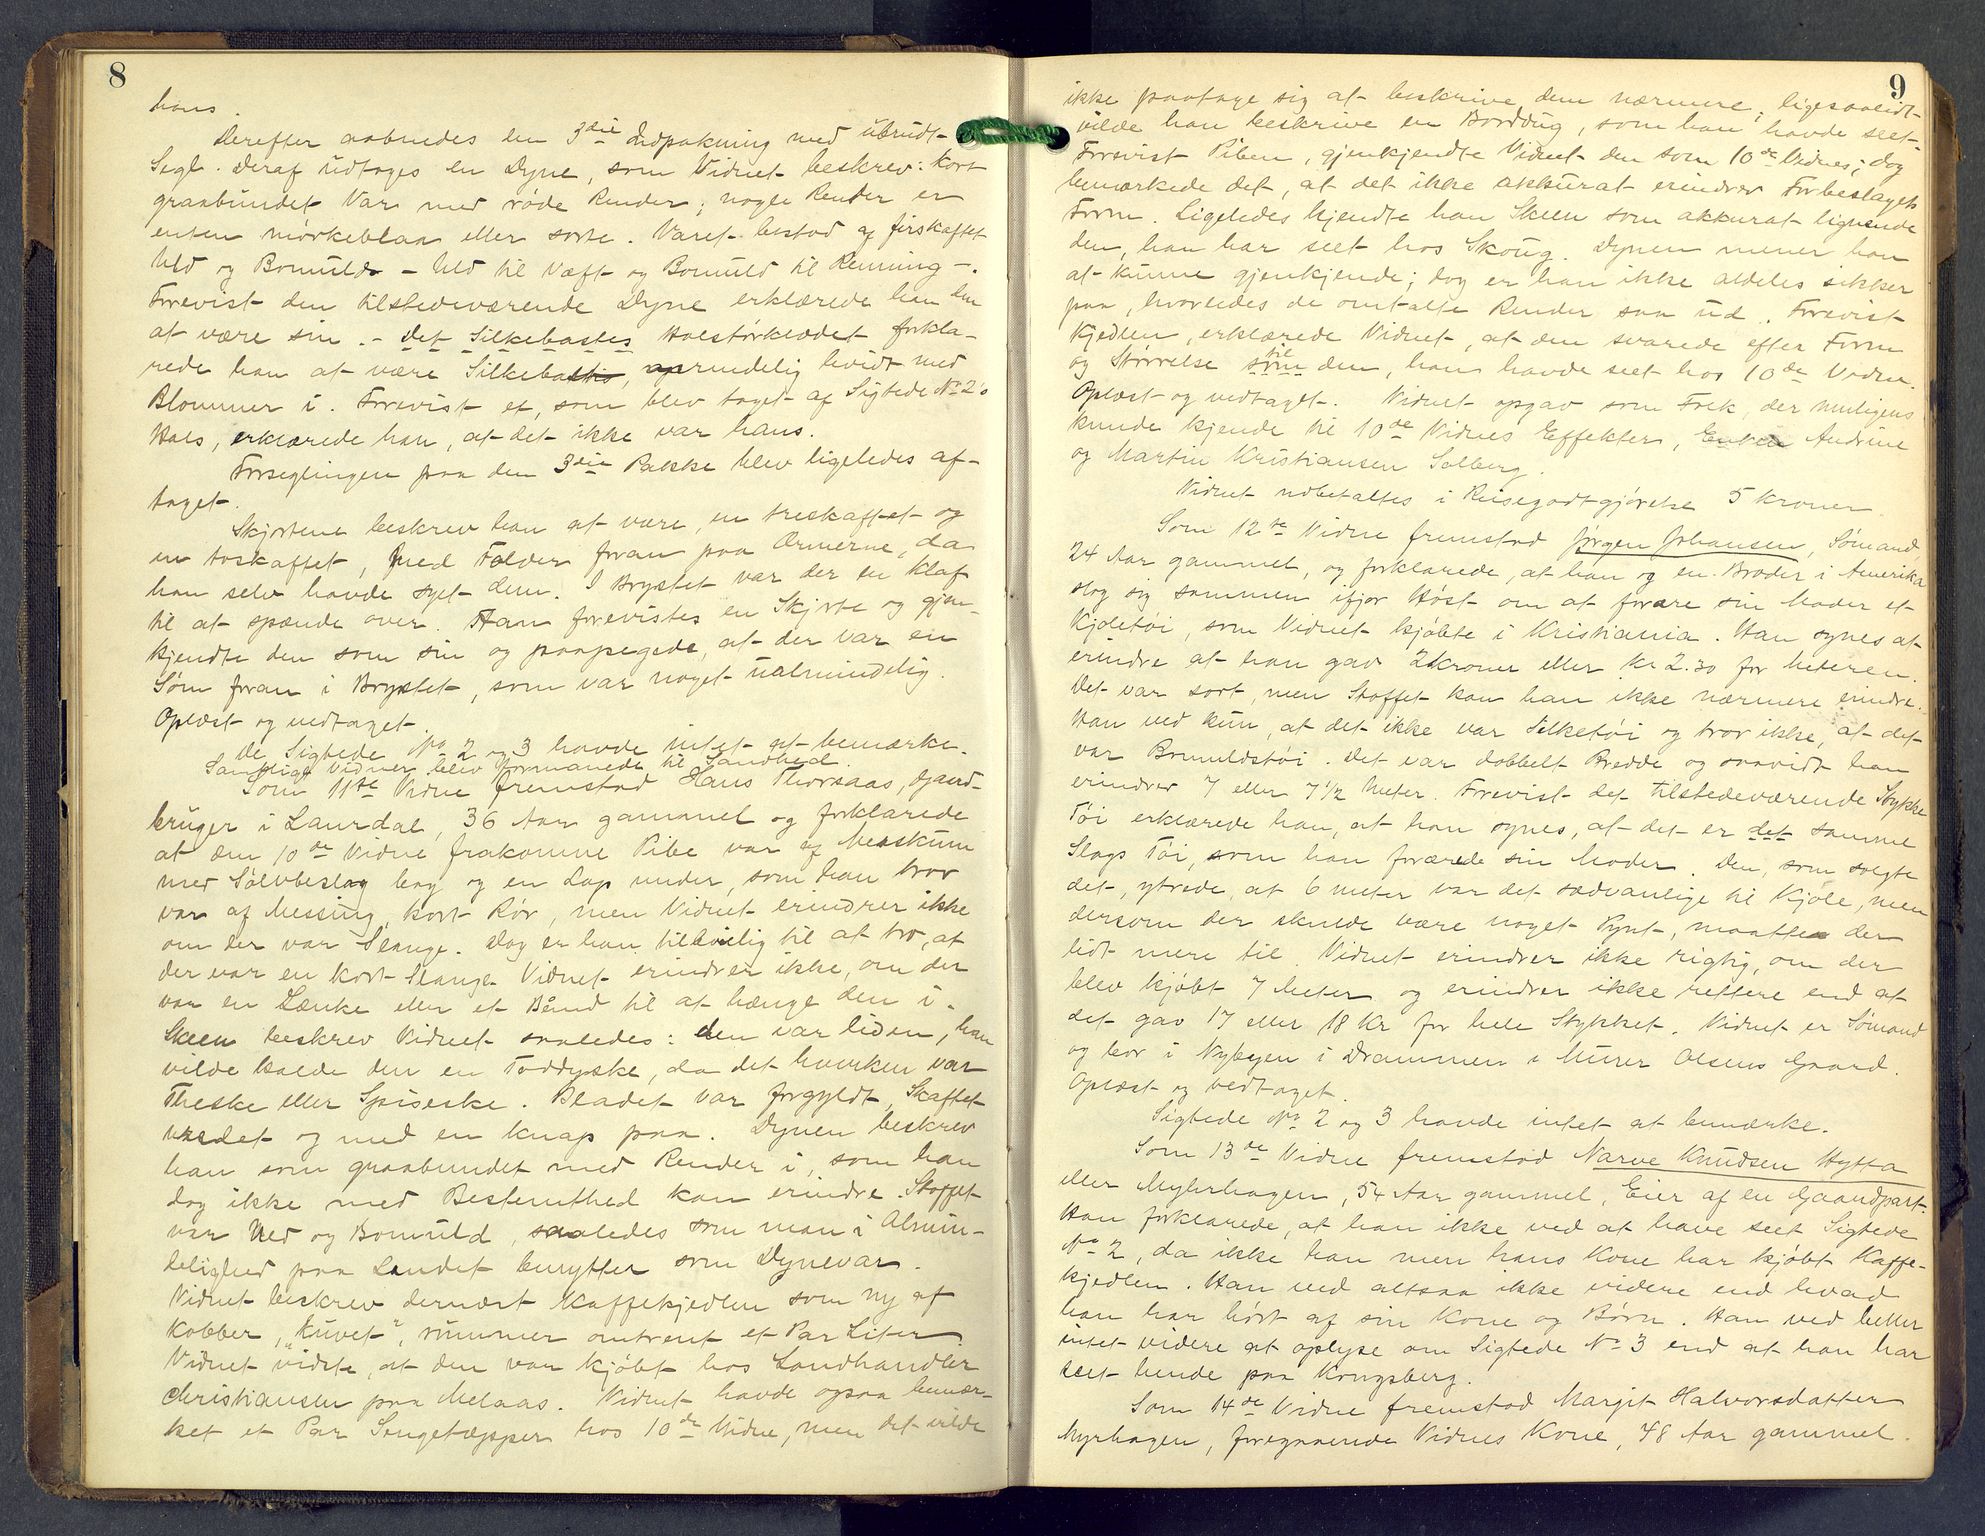 8
hans.
Derefter aabnedes den 3die Indpakning med ubrudt
Segl. Deraf udtoges en Dyne, som Vidnet beskrev: kort
graabundet Var med røde Render; nogle Render er
enten mørkeblaa eller sorte. Varet bestod af firskaftet
Uld og Bomuld – Uld til Væft og Bomuld til Renning –.
Forevist den tilstedeværende Dyne erklærede han den
at være sin. – Det Silkebastes Halstørklædet forkla-
rede han at være Silkebastis, oprindelig hvidt med
Blommer i. Forevist et, som blev taget af Sigtede No 2s
Hals, erklærede han, at det ikke var hans.
Forseglingen paa den 3die Pakke blev ligeledes af-
taget.
Skjortene beskrev han at være, en treskaftet og
en toskaftet, med Folder foran paa Ærmerne, da
han selv havde syet dem. I Brystet var der en Klaf
til at spænde over. Han forevistes en Skjorte og gjen-
kjendte den som sin og paapegede, at der var en
Søm foran i Brystet, som var noget ualmindelig.
Oplæst og vedtaget.
De Sigtede No 2 og 3 havde intet at bemærke.
Samtlige Vidner blev formanede til Sandhed.
Som 11te Vidne fremstod Hans Thorsaas, Gaard-
bruger i Laurdal, 36 Aar gammel og forklarede
at den 10de Vidne frakomne Pibe var af Merskum
med Sølvbeslag bag og en Lap under, som han tror
var af Messing, kort Rør, men Vidnet erindrer ikke
om der var Slange. Dog er han tilbøielig til at tro, at
der var en kort Slange. Vidnet erindrer ikke, om der
var en Lænke eller et Baand til at hænge den i.
Skeen beskrev Vidnet saaledes: den var liden, han
vilde kalde den en Toddyske, da det hverken var
Theske eller Spiseske. Bladet var forgyldt, Skaftet
vredet og med en Knap paa. Dynen beskrev
han som graabundet med Render i, som han
dog ikke med Bestemthed kan erindre. Stoffet
var Uld og Bomuld, saaledes som man i Almin-
delighed paa Landet benytter som Dynevar.
Vidnet beskrev dernæst Kaffekjedlen som ny af
Kobber, "kuvet", rummer omtrent et Par Liter.
Vidnet vidste, at den var kjøbt hos Landhandler
Christiansen paa Melaas. Vidnet havde ogsaa bemær-
ket et Par Sengetæpper hos 10de Vidne, men det vilde
9
ikke paatage sig at beskrive dem nærmere; ligesaalidt
vilde han beskrive en Borddug, som han havde seet.
Forevist Piben, gjenkjendte Vidnet den som 10de Vidnes; dog
bemærkede det, at det ikke akkurat erindrer Forbeslagets
Form. Ligeledes kjendte han Skeen som akkurat lignende
den, han har seet hos Skoug. Dynen mener han
at kunne gjenkjende; dog er han ikke aldeles sikker
paa, hvorledes de omtalte Render saa ud. Forevist
Kjedlen, erklærede Vidnet, at den svarede efter Form
og Størrelse som til den, han havde seet hos 10de Vidne.
Oplæst og vedtaget. Vidnet opgav som Folk, der muligens
kunde kjende til 10de Vidnes Effekter, Enken Andrine
og Martin Kristiansen Solberg.
Vidnet udbetaltes i Reisegodtgjørelse 5 Kroner.
Som 12te Vidne fremstod Jørgen Johansen, Sømand,
24 Aar gammel, og forklarede, at han og en Broder i Amerika
slog sig sammen ifjor Høst om at forære sin Moder et
Kjoletøi, som Vidnet kjøbte i Kristiania. Han synes at
erindre at han gav 2 Kroner eller Kr 2.30 for Meteren.
Det var sort, men Stoffet kan han ikke nærmere erindre.
Han ved kun, at det ikke var Silketøi og tror ikke, at det
var Bomuldstøi. Det var dobbelt Bredde og saavidt han
erindrer 7 eller 7 1/2 Meter. Forevist det tilstedeværende Stykke
Tøi erklærede han, at han synes, at det er det samme
Slags Tøi, som han forærede sin Moder. Den, som solgte
det, ytrede, at 6 Meter var det sædvanlige til Kjole, men
dersom der skulde være noget Pynt, maatte der
lidt mere til. Vidnet erindrer ikke rigtig, om der
blev kjøbt 7 Meter og erindrer ikke rettere end at
det gav 17 eller 18 Kr for hele Stykket. Vidnet er Sømand
og bor i Nybyen i Drammen i Murer Olsens Gaard.
Oplæst og vedtaget.
Sigtede No 2 og 3 havde intet at bemærke.
Som 13de Vidne fremstod Narve Knudsen Hytta
eller Myhrhagen, 54 Aar gammel, Eier af en Gaardpart.
Han forklarede, at han ikke ved at have seet Sigtede
No 2, da ikke han men hans Kone har kjøbt Kaffe-
kjedlen. Han ved altsaa ikke videre end hvad
han har hørt af sin Kone og Børn. Han ved heller
intet videre at oplyse om Sigtede No 3 end at han har
seet hende paa Kongsberg.
Som 14de Vidne fremstod Margit Halvorsdatter
Myrhagen, foregaaende Vidnes Kone, 48 Aar gammel.